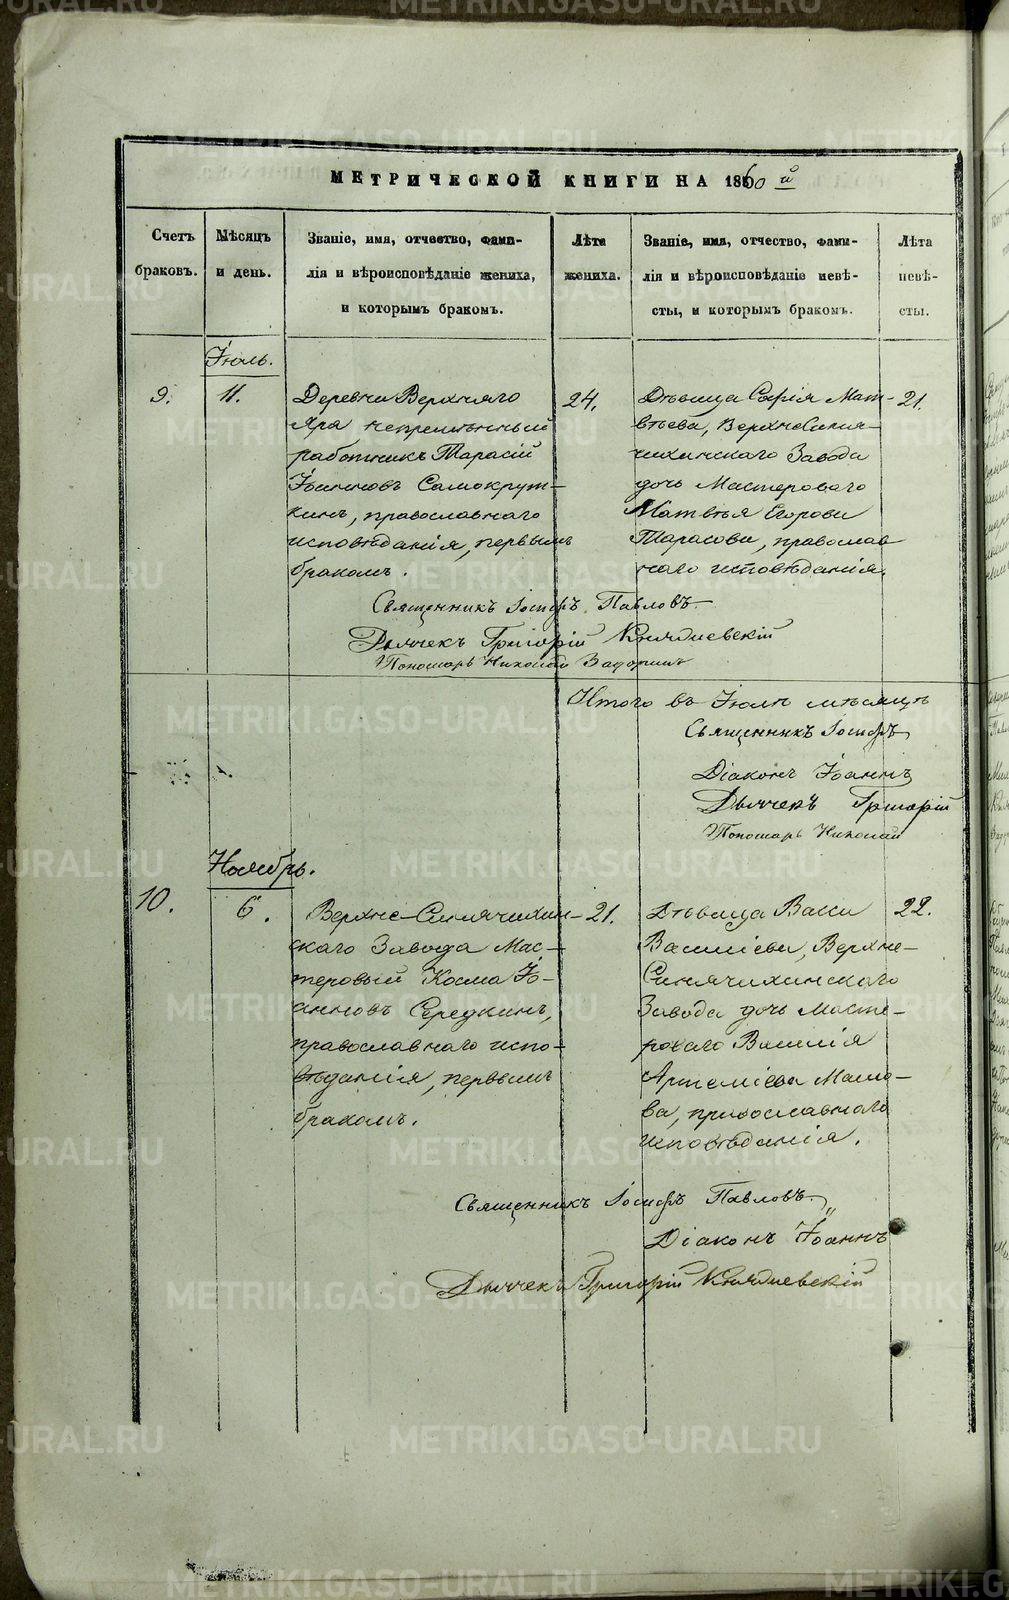 МЕТРИЧЕСКОЙ КНИГИ НА 1860 й
Счетъ браковъ.
Мѣсяцъ и день.
Званіе, имя, отчество, фами-
лія и вѣроисповѣданіе жениха,
и которымъ бракомъ.
Лѣта жениха.
Званіе, имя, отчество, фами-
лія и вѣроисповѣданіе невѣ-
сты, и которымъ бракомъ.
Лѣта невѣ-
сты.
Іюль.
9.
11.
Деревни Верхняго
Яра непремѣнный
работникъ Тарасій
Іоанновъ Самокрут-
кинъ, православнаго
исповѣданія, первымъ
бракомъ.
24.
Дѣвица Софія Мат-
вѣева, ВерхнеСиня-
чихинскаго Завода
дочь Мастероваго
Матвѣя Егорова
Тарасова, православ
наго исповѣданія.
21.
Священникъ Іосифъ Павловъ.
Дьячекъ Григорій
Пономарь Николай
Итого въ Іюлѣ мѣсяцѣ
Священникъ Іосифъ
Діаконъ Іоаннъ
Дьячекъ Григорій
Пономарь Николай
Ноябрь.
10.
6.
Верхне-Синячихин-
скаго Завода Мас-
теровый Косма Іо-
анновъ Середкинъ,
православнаго испо-
вѣданія, первымъ
бракомъ.
21.
Дѣвица Васса
Василіева, Верхне-
Синячихинскаго
Завода дочь Масте-
роваго Василія
Артеміева Мама-
ва, православнаго
исповѣданія.
22.
Священникъ Іосифъ Павловъ.
Діаконъ Іоаннъ
Дьячекъ Григорій
METRIKI.GASO-URAL.RU